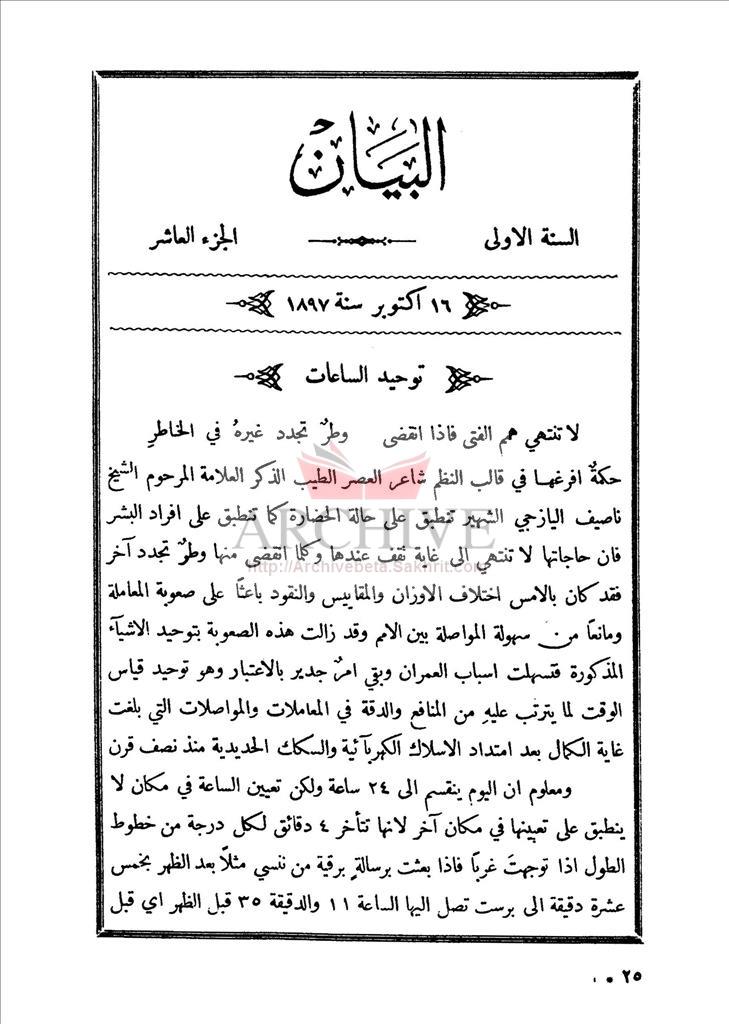 البيان
السنة الاولى الجزء العاشر
١٦ اكتوبر سنة ١٨٩٧
توحيد الساعات
لا تنتهي همم الفتى فاذا انقضى وطرٌ تجدد غيرهُ في الخاطرِ
حكمةٌ افرغها في قالب النظم شاعر العصر الطيب الذكر العلامة المرحوم الشيخ
ناصيف اليازجي الشهير تنطبق على حالة الحضارة كما تنطبق على افراد البشر
فان حاجاتها لا تنتهي الى غاية نقف عندها وكلما انقضى منها وطرٌ تجدد آخر
فقد كان بالامس اختلاف الاوزان والمقاييس والنقود باعثًا على صعوبة المعاملة
ومانعًا من سهولة المواصلة بين الامم وقد زالت هذه الصعوبة بتوحيد الاشيآء
المذكورة فتسهلت اسباب العمران وبقي امرٌ جدير بالاعتبار وهو توحيد قياس
الوقت لما يترتب عليهِ من المنافع والدقة في المعاملات والمواصلات التي بلغت
غاية الكمال بعد امتداد الاسلاك الكهربآئية والسكك الحديدية منذ نصف قرن
ومعلوم ان اليوم ينقسم الى ٢٤ ساعة ولكن تعيين الساعة في مكان لا
ينطبق على تعيينها في مكان آخر لانها تتأخر ٤ دقائق لكل درجة من خطوط
الطول اذا توجهتَ غربًا فاذا بعثت برسالةٍ برقية من ننسي مثلًا بعد الظهر بخمس
عشرة دقيقة الى برست تصل اليها الساعة ١١ والدقيقة ٣٥ قبل الظهر اي قبل
٢٥
ARCHIVE
http://Archivebeta.Sakhrit.com